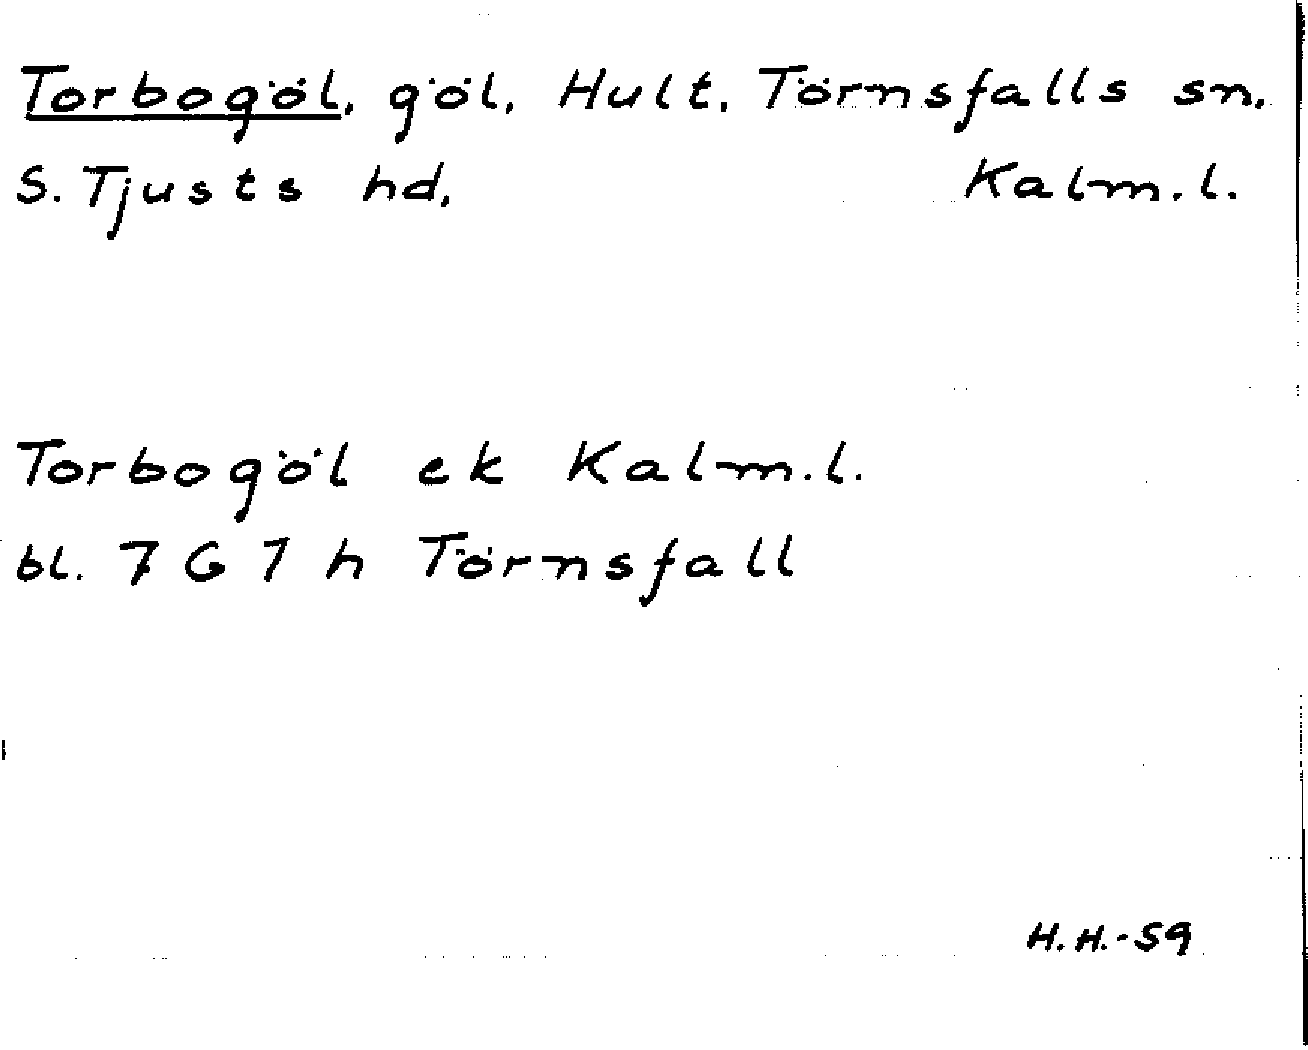 Torbogöl, göl, Hult, Törnsfalls sn.
S. Tjusts hd, Kalm.l.
Torbogöl ek Kalm.l.
bl. 7 G 7 h Törnsfall
H.H.-59